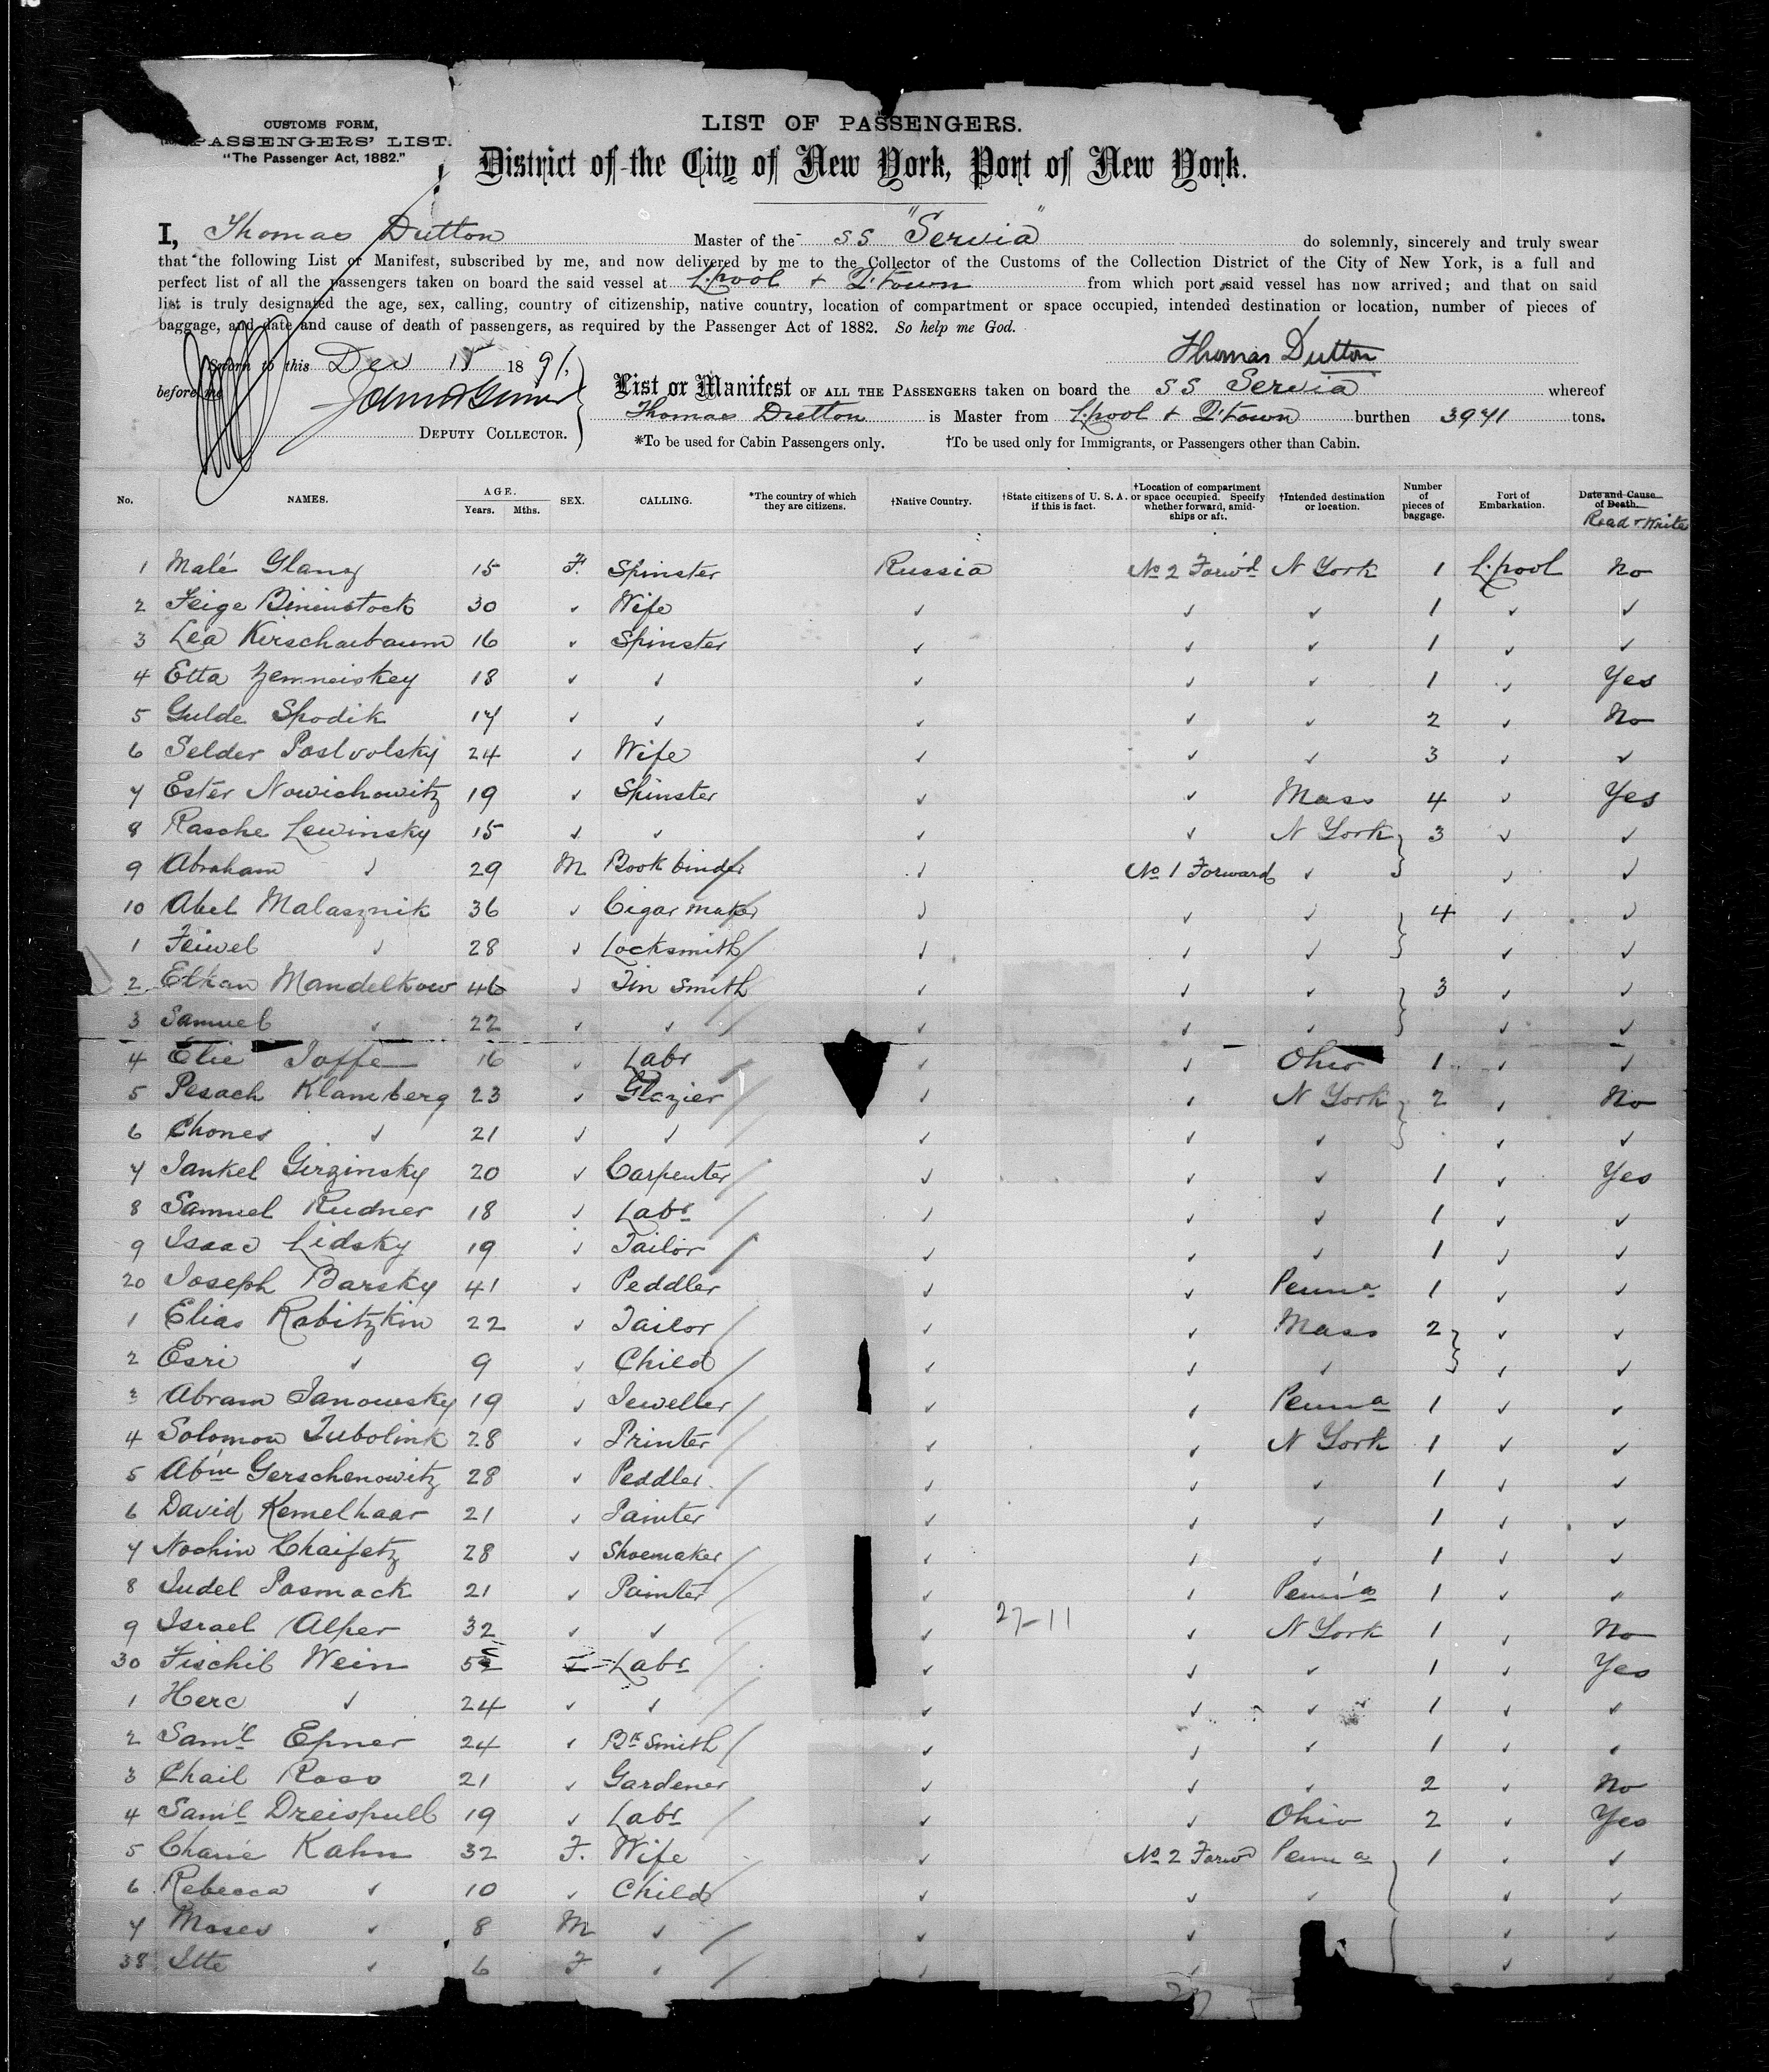 CUSTOMS FORM,
PASSENGERS' LIST.
"The Passenger Act, 1882."
LIST OF PASSENGERS.
District of the City of New York, Port of New York.
I, Thomas Dutton Master of the SS "Servia" do solemnly, sincerely and truly swear
that the following List or Manifest, subscribed by me, and now delivered by me to the Collector of the Customs of the Collection District of the City of New York, is a full and
perfect list of all the passengers taken on board the said vessel at L.pool + Q.town from which port said vessel has now arrived; and that on said
list is truly designated the age, sex, calling, country of citizenship, native country, location of compartment or space occupied, intended destination or location, number of pieces of
baggage, and date and cause of death of passengers, as required by the Passenger Act of 1882. So help me God.
Sworn to this Dec 15 1891, Thomas Dutton
before me
List or Manifest OF ALL THE PASSENGERS taken on board the SS Servia whereof
Thomas Dutton is Master from L.pool + Q.town burthen 3971 tons.
DEPUTY COLLECTOR. *To be used for Cabin Passengers only. †To be used only for Immigrants, or Passengers other than Cabin.
No. NAMES. AGE. Years. Mths. SEX. CALLING. *The country of which they are citizens. †Native Country. †State citizens of U. S. A. if this is fact. †Location of compartment or space occupied. Specify whether forward, amidships or aft. †Intended destination or location. Number of pieces of baggage. Port of Embarkation. Date and Cause of Death. Read & Write
1 Malé Glanz 15 F. Spinster Russia No 2 Forw'd N York 1 L.pool No
2 Feige Bininstock 30 ✓ Wife ✓ ✓ ✓ 1 ✓ ✓
3 Lea Kirschaubaum 16 ✓ Spinster ✓ ✓ ✓ 1 ✓ ✓
4 Etta Zemneiskey 18 ✓ ✓ ✓ ✓ ✓ 1 ✓ Yes
5 Gulde Spodik 17 ✓ ✓ ✓ ✓ ✓ 2 ✓ No
6 Selder Postvolsky 24 ✓ Wife ✓ ✓ ✓ 3 ✓ ✓
7 Ester Nowichowitz 19 ✓ Spinster ✓ ✓ Mass 4 ✓ Yes
8 Rasche Lewinsky 15 ✓ ✓ ✓ ✓ N York 3 ✓ ✓
9 Abraham ✓ 29 M Bookbinder ✓ No 1 Forward ✓ ✓ ✓
10 Abel Malasznik 36 ✓ Cigar maker ✓ ✓ ✓ 4 ✓ ✓
1 Feiwel ✓ 28 ✓ Locksmith ✓ ✓ ✓ ✓ ✓
2 Elkan Mandelkow 46 ✓ Tin Smith ✓ ✓ ✓ 3 ✓ ✓
3 Samuel ✓ 22 ✓ ✓ ✓ ✓ ✓ ✓ ✓
4 Elie Joffe 16 ✓ Labr ✓ ✓ Ohio 1 ✓ ✓
5 Pesach Klamberg 23 ✓ Glazier ✓ ✓ N York 2 ✓ No
6 Chones ✓ 21 ✓ ✓ ✓ ✓ ✓ ✓ ✓
7 Jankel Girzinsky 20 ✓ Carpenter ✓ ✓ ✓ 1 ✓ Yes
8 Samuel Rudner 18 ✓ Labr ✓ ✓ ✓ 1 ✓ ✓
9 Isaac Lidsky 19 ✓ Tailor ✓ ✓ ✓ 1 ✓ ✓
20 Joseph Barsky 41 ✓ Peddler ✓ ✓ Penna 1 ✓ ✓
1 Elias Rabitzkin 22 ✓ Tailor ✓ ✓ Mass 2 ✓ ✓
2 Esri ✓ 9 ✓ Child ✓ ✓ ✓ ✓ ✓
3 Abram Janowsky 19 ✓ Jeweller ✓ ✓ Penna 1 ✓ ✓
4 Solomon Tubolink 28 ✓ Printer ✓ ✓ N York 1 ✓ ✓
5 Abm Gerschenowitz 28 ✓ Peddler ✓ ✓ ✓ 1 ✓ ✓
6 David Kemelhaar 21 ✓ Painter ✓ ✓ ✓ 1 ✓ ✓
7 Nochin Chaifetz 28 ✓ Shoemaker ✓ ✓ ✓ 1 ✓ ✓
8 Judel Posmack 21 ✓ Painter ✓ ✓ Penna 1 ✓ ✓
9 Israel Alper 32 ✓ ✓ ✓ 27-11 ✓ N York 1 ✓ No
30 Fischil Wein 52 ✓ Labr ✓ ✓ ✓ 1 ✓ Yes
1 Herc ✓ 24 ✓ ✓ ✓ ✓ ✓ 1 ✓ ✓
2 Saml Epner 24 ✓ Bk Smith ✓ ✓ ✓ 1 ✓ ✓
3 Chail Ross 21 ✓ Gardener ✓ ✓ ✓ 2 ✓ No
4 Saml Dreispull 19 ✓ Labr ✓ ✓ Ohio 2 ✓ Yes
5 Charie Kahn 32 F. Wife ✓ No 2 Forwd Penna 1 ✓ ✓
6 Rebecca ✓ 10 ✓ Child ✓ ✓ ✓ ✓ ✓
7 Moses ✓ 8 M ✓ ✓ ✓ ✓ ✓
38 Itte ✓ 6 F ✓ ✓ ✓ ✓